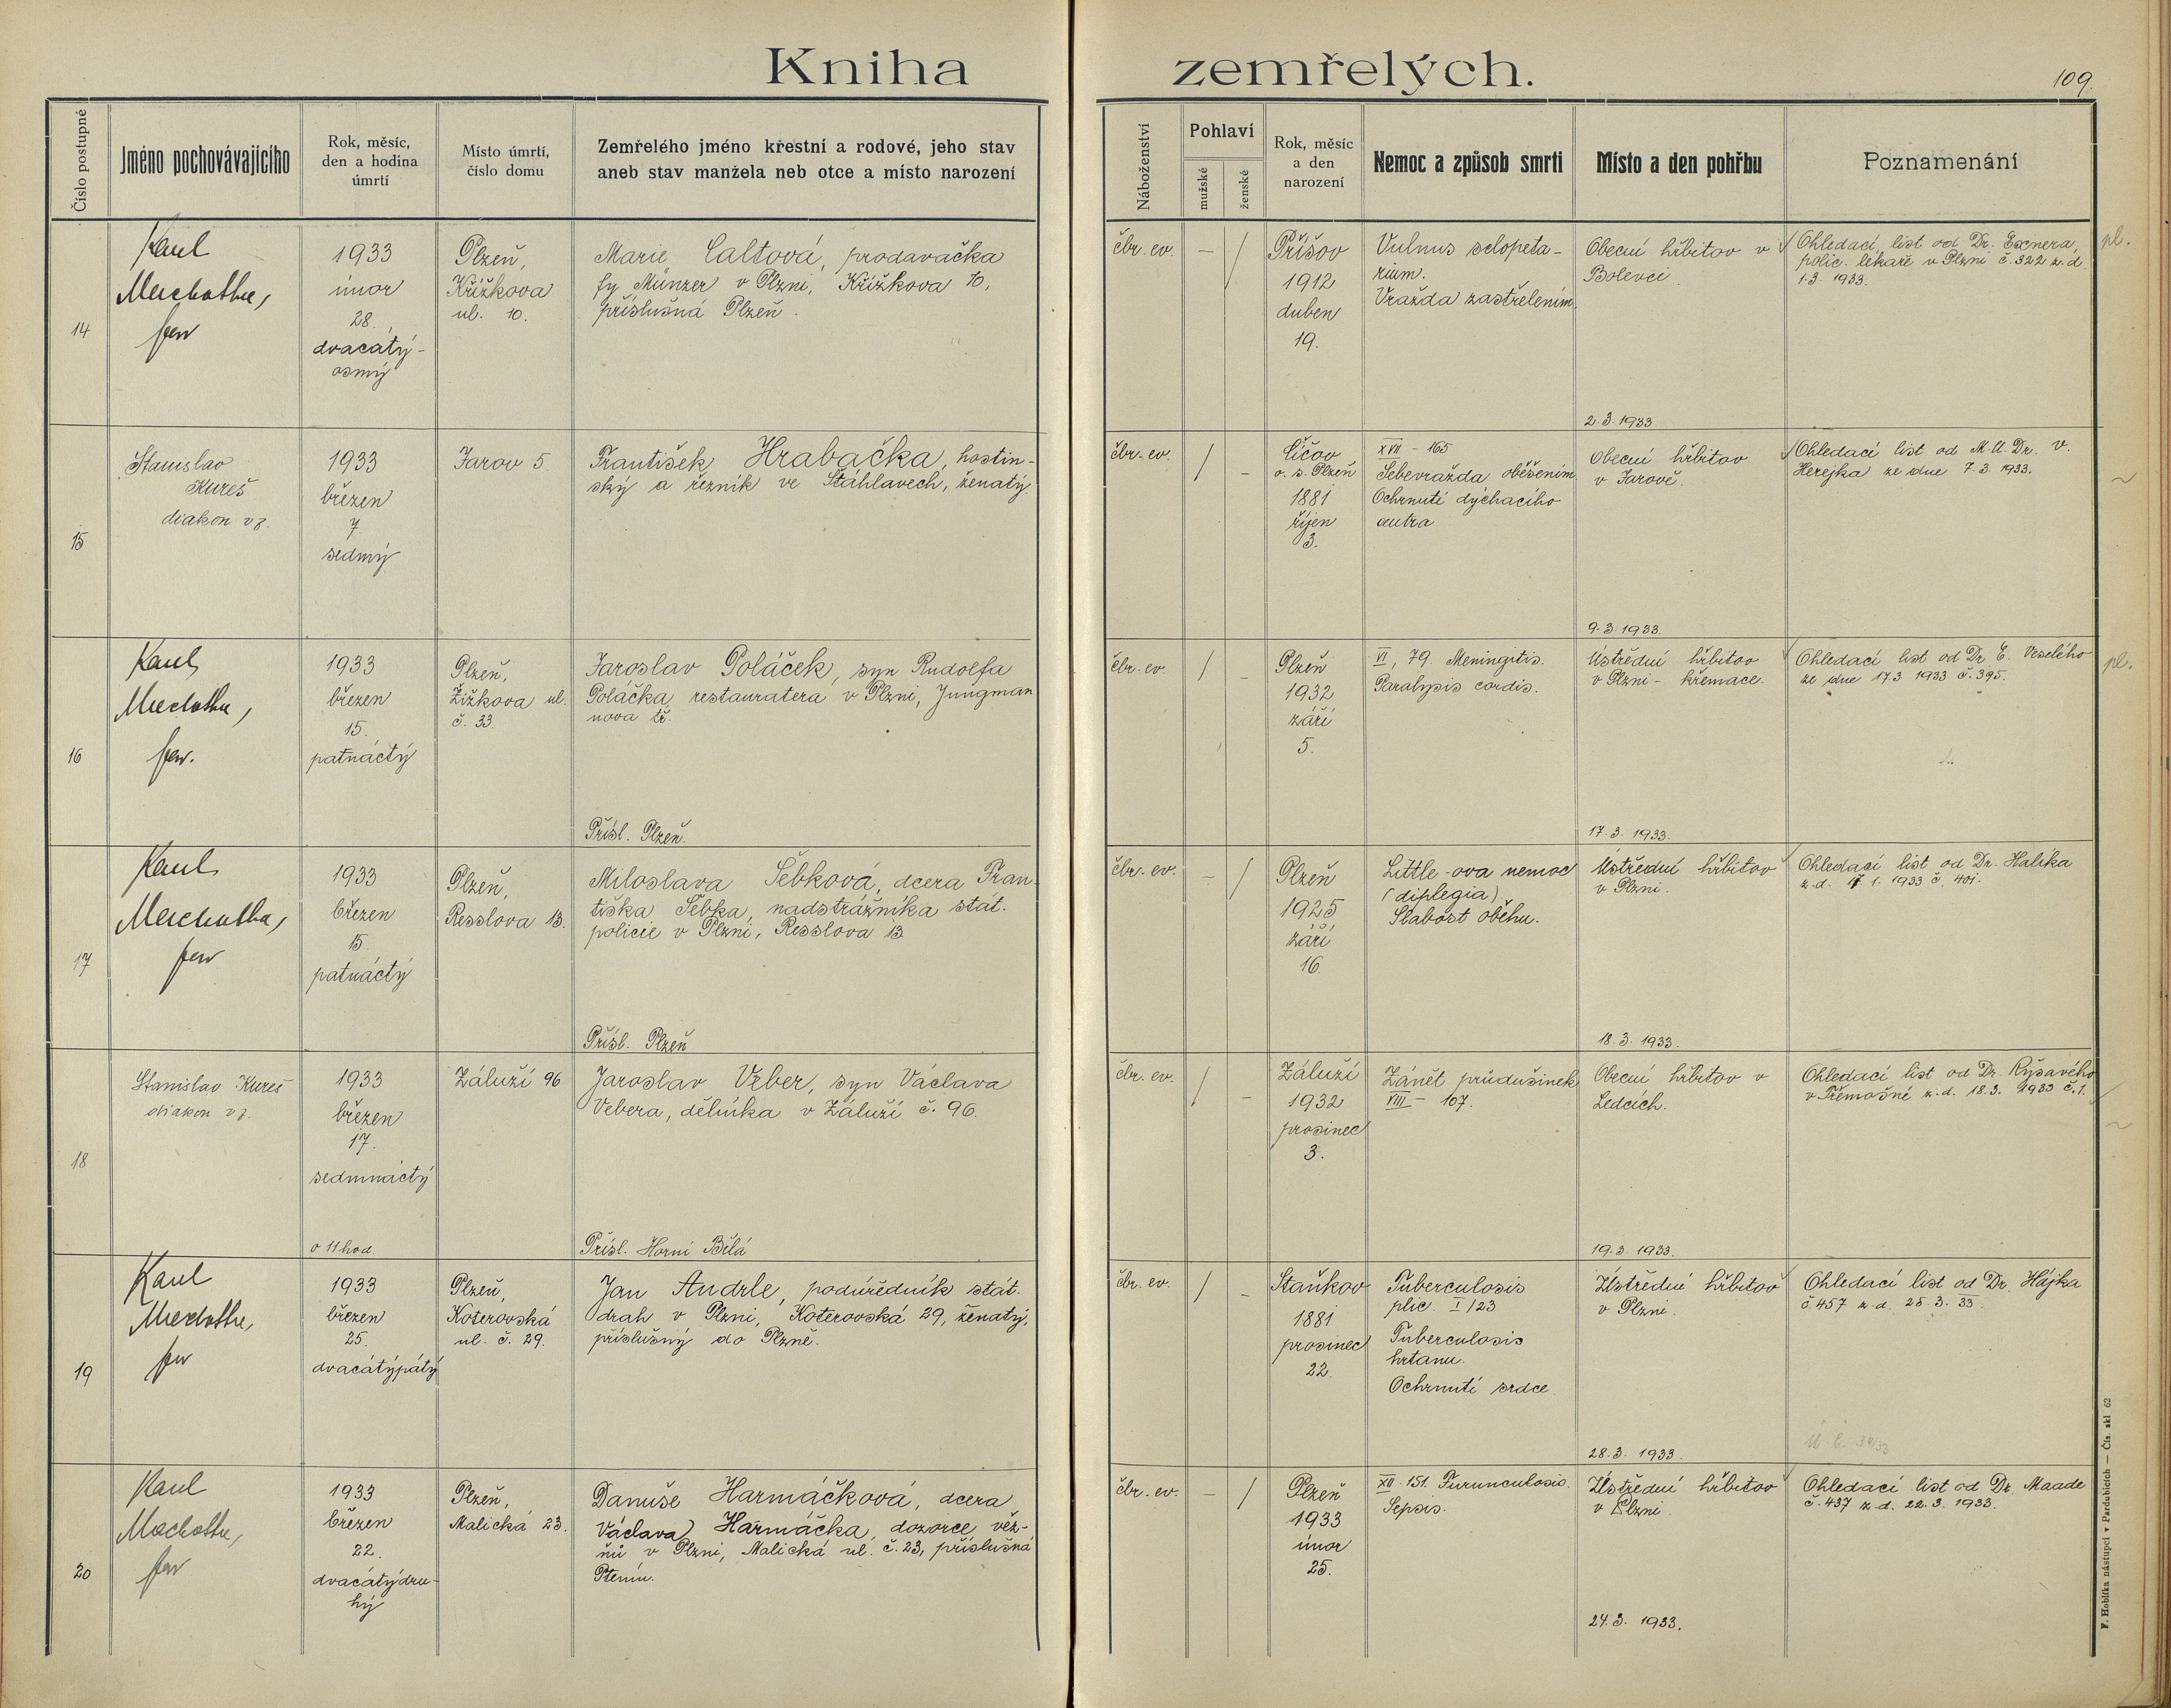 Kniha zemřelých.
109.
Číslo postupné
Jméno pochovávajícího
Rok, měsíc,
den a hodina
úmrtí
Místo úmrtí,
číslo domu
Zemřelého jméno křestní a rodové, jeho stav
aneb stav manžela neb otce a místo narození
Náboženství
Pohlaví
mužské
ženské
Rok, měsíc
a den
narození
Nemoc a způsob smrti
Místo a den pohřbu
Poznamenání
14
Karel
1933
únor
28.
dvacátý-
osmý
Plzeň,
Křížkova
ul. 10.
Marie Caltová, prodavačka
fy Münzer v Plzni, Křížkova 10,
příslušná Plzeň.
čbr. ev.
—
/
Příšov
1912
duben
19.
Vulnus sclopeta-
rium.
Vražda zastřelením
Obecní hřbitov v
Bolevci
2.3.1933
Ohledací list od Dr. Exnera,
polic. lékaře v Plzni č. 322 z.d.
1.3. 1933.
pl.
15
Stanislav
Kureš
diakon vz.
1933
březen
7
sedmý
Jarov 5
František Hrabačka, hostin-
ský a řezník ve Štáhlavech, ženatý
čbr. ev.
/
-
Číčov
o. s. Plzeň
1881
říjen
3.
XVII - 165
Sebevražda oběšením
Ochrnutí dýchacího
centra
Obecní hřbitov
v Jarově.
9.3.1933.
Ohledací list od M.U.Dr. V.
Herejka ze dne 7.3.1933.
16
Karel
1933
březen
15.
patnáctý
Plzeň,
Žižkova ul.
č. 33
Jaroslav Poláček, syn Rudolfa
Poláčka restauratera v Plzni, Jungman
nova tř.
Přísl. Plzeň.
čbr. ev.
/
-
Plzeň
1932
září
5.
VI, 79. Meningitis.
Paralysis cordis.
Ústřední hřbitov
v Plzni - křemace.
17.3.1933.
Ohledací list od Dr. E. Veselého
ze dne 17.3 1933 č. 395.
pl.
17
Karel
1933
březen
15
patnáctý
Plzeň,
Resslova 13.
Miloslava Šebková, dcera Fran-
tiška Šebka, nadstrážníka stát.
policie v Plzni, Resslova 13
Přísl. Plzeň
čbr. ev.
-
/
Plzeň
1925
září
16.
Little-ova nemoc
(diplegia)
Slabost oběhu.
Ústřední hřbitov
v Plzni.
18.3.1933.
Ohledací list od Dr. Halíka
z.d. 17 1. 1933 č. 401.
18
Stanislav Kureš
diakon vz.
1933
březen
17.
sedmnáctý
o 11 hod.
Záluží 96
Jaroslav Veber, syn Václava
Vebera, dělníka v Záluží č. 96.
Přísl. Horní Bělá
čbr. ev.
/
-
Záluží
1932
prosinec
3.
Zánět průdušinek
VIII - 107.
Obecní hřbitov v
Ledcích.
19.3 1933.
Ohledací list od Dr. Ryšavého
v Třemošné z.d. 18.3. 1933 č.1.
19
Karel
1933
březen
25.
dvacátýpátý
Plzeň,
Koterovská
ul. č. 29.
Jan Andrle, podúředník stát.
drah v Plzni, Koterovská 29, ženatý,
příslušný do Plzně.
čbr. ev.
/
-
Staňkov
1881
prosinec
22.
Tuberculosis
plic. I/23
Tuberculosis
hrtanu.
Ochrnutí srdce
Ústřední hřbitov
v Plzni
28.3. 1933.
Ohledací list od Dr. Hájka
č. 457 z.d. 25.3. 33.
20
Karel
1933
březen
22.
dvacátýdru-
hý
Plzeň,
Malická 23.
Danuše Harmáčková, dcera
Václava Harmáčka, dozorce věz-
ňů v Plzni, Malická ul. č. 23, příslušná
čbr. ev.
-
/
Plzeň
1933
únor
25.
XII. 151. Furunculosis.
Sepsis.
Ústřední hřbitov
v Plzni.
24.3. 1933.
Ohledací list od Dr. Maade
č. 437 z.d. 22.3. 1933.
F. Hoblíka nástupci v Pardubicích — Čís. skl 62